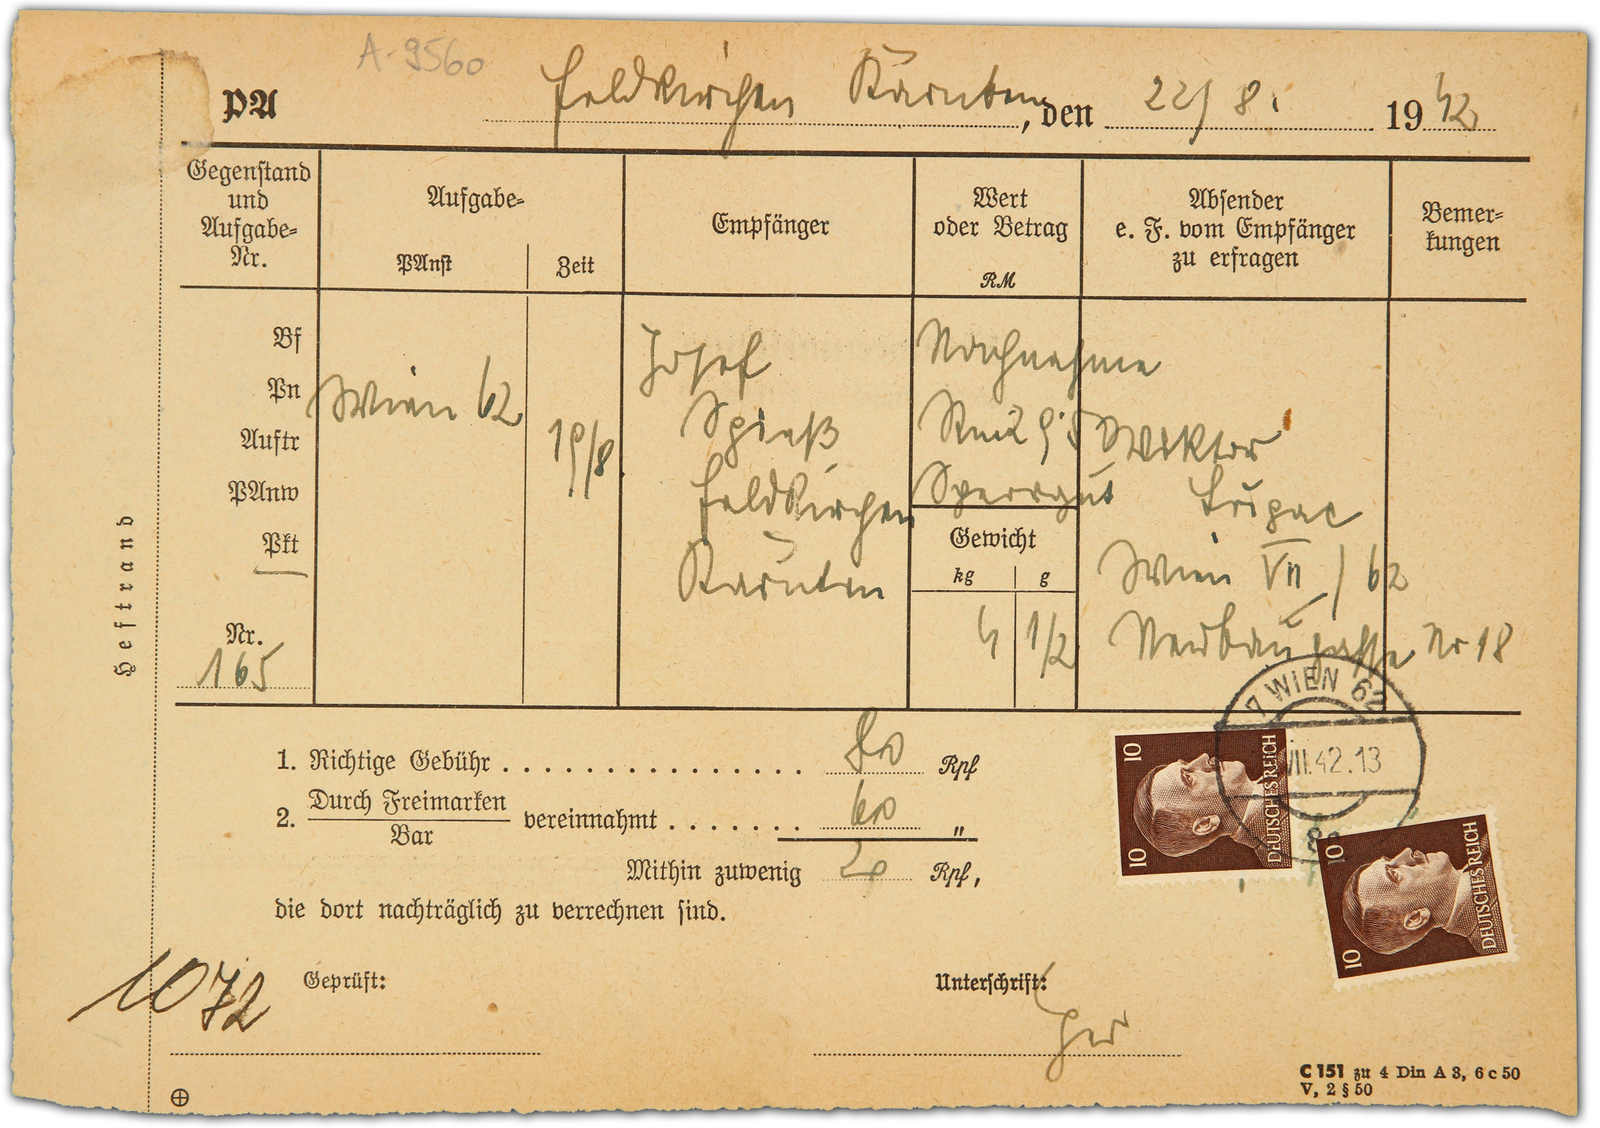 A-9560
PA Feldkirchen Kärnten, den 22/8. 1942
Gegenstand und Aufgabe-Nr.
Aufgabe-
PAnst
Zeit
Empfänger
Wert oder Betrag
RM
Absender
e. F. vom Empfänger
zu erfragen
Bemer-
kungen
Bf
Pn
Auftr
PAnw
Pkt
Nr.
165
Wien 62
19/8
Josef
Spieß
Feldkirchen
Kärnten
Nachnahme
Sperrgut
Gewicht
kg g
4 1/2
Wien VII / 62
Neubaugasse Nr 18
Heftrand
1. Richtige Gebühr . . . . . . . . . . . . . . . . 80 Rpf
2. Durch Freimarken
Bar
vereinnahmt . . . . . . . 60 "
Mithin zuwenig 20 Rpf,
die dort nachträglich zu verrechnen sind.
7 WIEN 62
VIII.42.13
10
DEUTSCHES REICH
10
10
DEUTSCHES REICH
10
1072
Geprüft:
Unterschrift:
C 151 zu 4 Din A 3, 6 c 50
V, 2 § 50